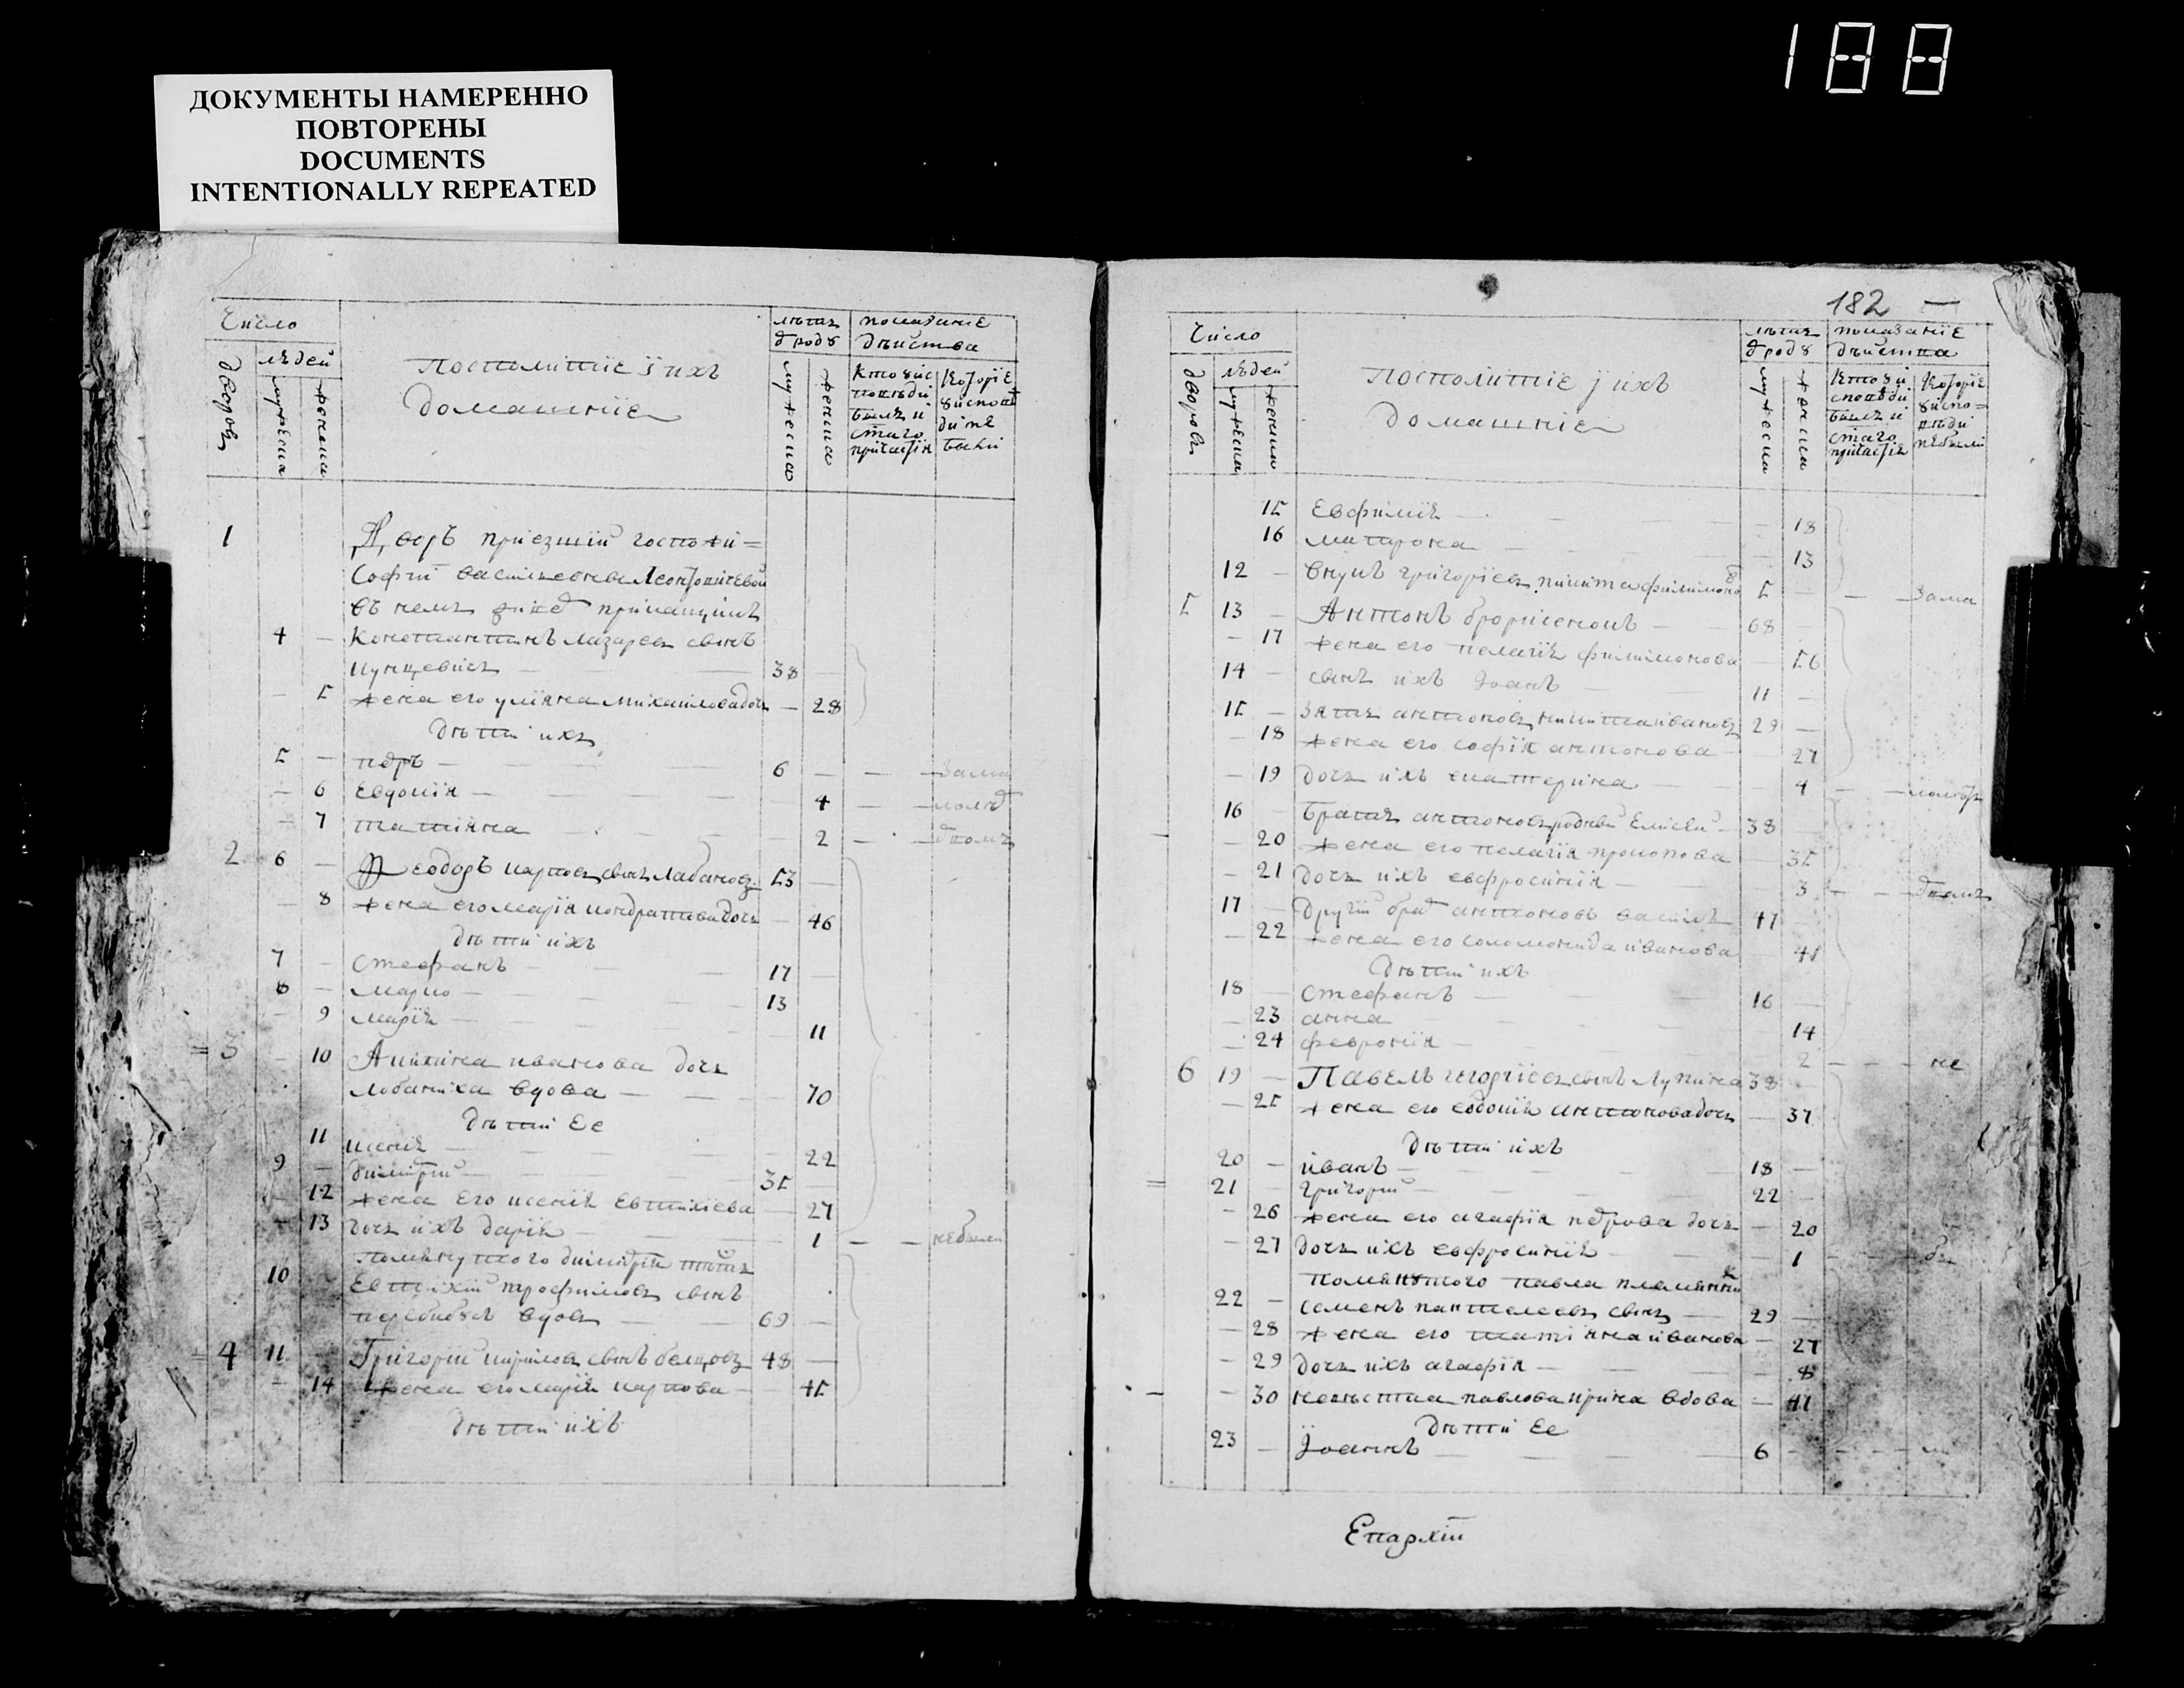 188
ДОКУМЕНТЫ НАМЕРЕННО
ПОВТОРЕНЫ
DOCUMENTS
INTENTIONALLY REPEATED
Число
людей
дворовъ
мужеска
женска
посполитіе і ихъ
домашніе
лѣта
ѿ роду
мужеска
женска
показаніе
дѣйства
Кто у ис
повѣди
былъ и
стаго
причастія
Которіе
у испов
ди не
были
1 Дворъ приезшій госпожи=
Софіи василевны Леонтовичевой
въ немъ прикащикъ
4 — Константинъ лазаревъ сынъ
38
— 5 жена его уліяна михаиловадочь — 28
дѣти ихъ
5 — петръ — 6 — — — за мал
— 6 Евдокія — 4 — —
— 7 татіяна — 2 — —
2 6 — Ѳеодоръ карповъ сынъ Лабановъ 53 —
— 8 жена его марія кондратиевадочь — 46
дѣти ихъ
7 — Стефанъ — 17 —
8 — марко — 13
— 9 марія — 11
3 — 10 Акилина иванова дочь
лобаниха вдова — 70
дѣти Ее
11 ксенія — 22
9 — димитрій — 35 —
— 12 жена Его ксенія Евтихіева — 27
— 13 дочь ихъ дарія — 1 — — не была
помянутого димитрія тесть
10 Евтихій трофимовъ сынъ
вдовъ — 69 —
4 11 Григорій кириловъ сынъ 48 —
— 14 жена его марія карпова — 45
дѣти ихъ
182 —
Число
людей
дворовъ
мужеска
женска
посполитіе і ихъ
домашніе
лѣта
ѿ роду
мужеска
женска
показаніе
дѣйства
Кто у и
сповѣди
былъ и
стаго
причастія
Которіе
у испо=
вѣди
не были
15 Евфимія — 18
16 матрона — 13
12 — внукъ григоріевъ никита филимоно 5 — — за мал
5 13 — Антонъ 68 —
— 17 жена его пелагія филимонова — 56
14 — сынъ ихъ Іоанъ 11 —
15 — Зять антоновъ никита ивановъ 29 —
— 18 жена его софія антонова — 27
— 19 дочь ихъ екатерина — 4 — —
16 братъ антоновъ родный Елисей — 38
— 20 жена его пелагія прокопова — 35
— 21 дочь ихъ евфросинія — 3 — —
17 — другій брат антоновъ василь 47
— 22 жена его соломонида иванова — 41
дѣти ихъ
18 — Стефанъ — 16
— 23 анна — 14
— 24 февронія — 2 — — не
6 19 — Павелъ георгіевъ сынъ Лупина 38
— 25 жена его евдокія антоновадочь — 37
дѣти ихъ
20 — иванъ — 18 —
21 григорій — 22 —
— 26 жена его агафія петрова дочь — 20
— 27 дочь ихъ евфросинія — 1
помянутого павла племянни
22 — семенъ пантелеевъ сынъ — 29
— 28 жена его татіяна иванова — 27
— 29 дочь ихъ агафія — 8
— 30 невѣстка павлова ирина вдова — 41
дѣти Ее
23 — Іоаннъ — 6 —
Епархіи